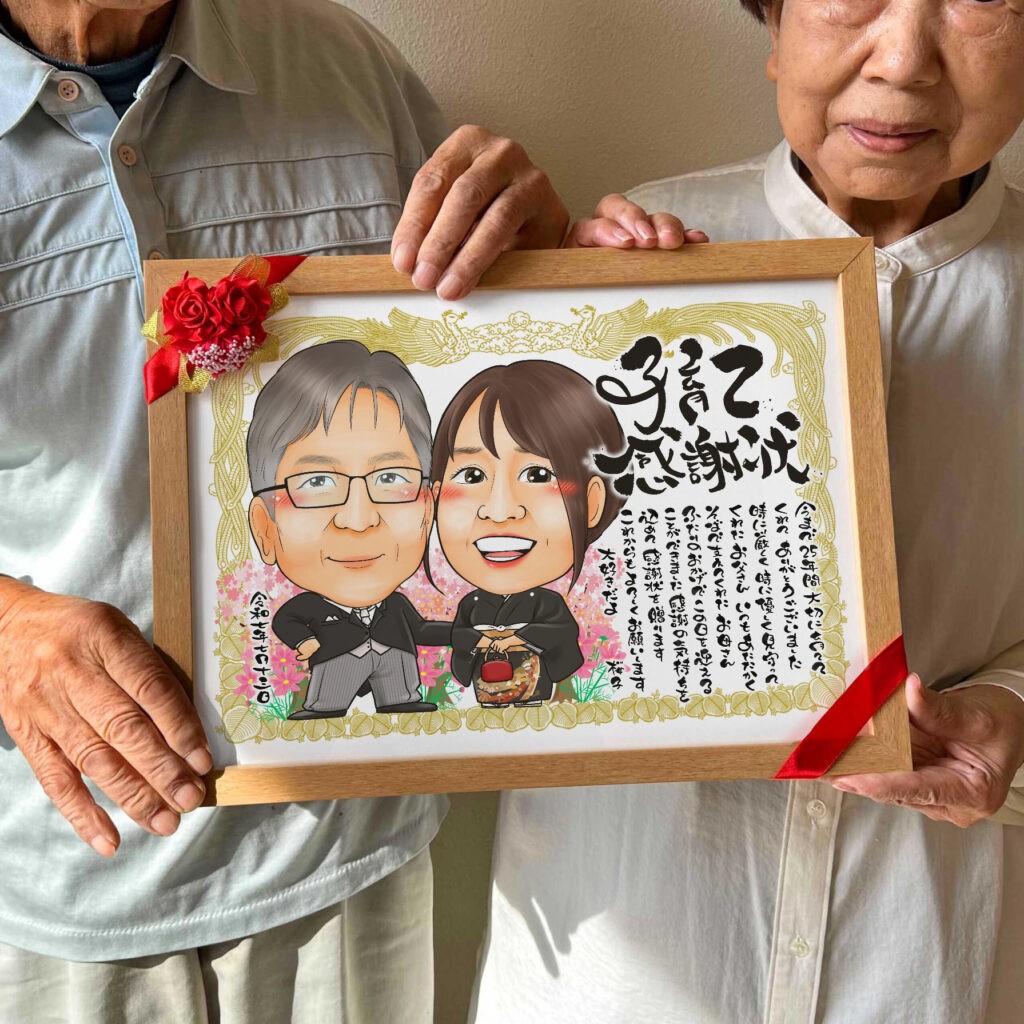 子育て
感謝状
今まで25年間 大切に育てて
くれて ありがとうございました
時に厳しく 時に優しく見守って
くれた お父さん いつもあたたかく
そばで支えてくれた お母さん
ふたりのおかげで この日を迎える
ことができました 感謝の気持ちを
込めて 感謝状を贈ります
これからもよろしくお願いします
大好きだよ
桜子
令和七年七月十三日